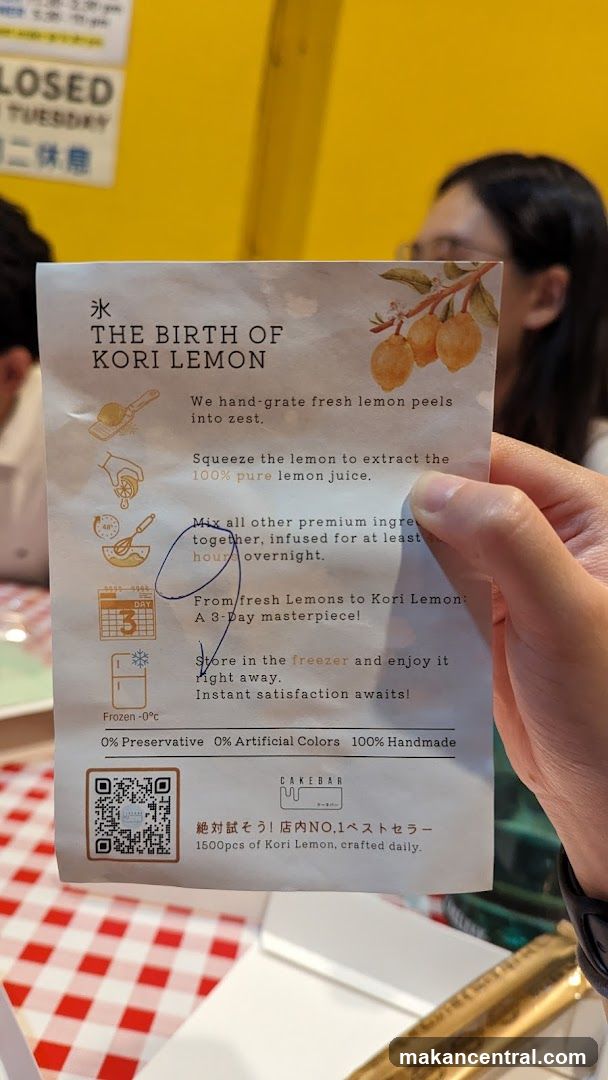 LOSED
TUESDAY
二休息
氷
THE BIRTH OF
KORI LEMON
We hand-grate fresh lemon peels
into zest.
Squeeze the lemon to extract the
100% pure lemon juice.
48H
Mix all other premium
together, infused for at least
hours overnight.
DAY
3
From fresh Lemons to Kori Lemon:
A 3-Day masterpiece!
Store in the freezer and enjoy it
right away.
Instant satisfaction awaits!
Frozen -0°c
0% Preservative 0% Artificial Colors 100% Handmade
CAKEBAR
ケーキバー
絶対試そう! 店内NO,1ベストセラー
1500pcs of Kori Lemon, crafted daily.
makancentral.com